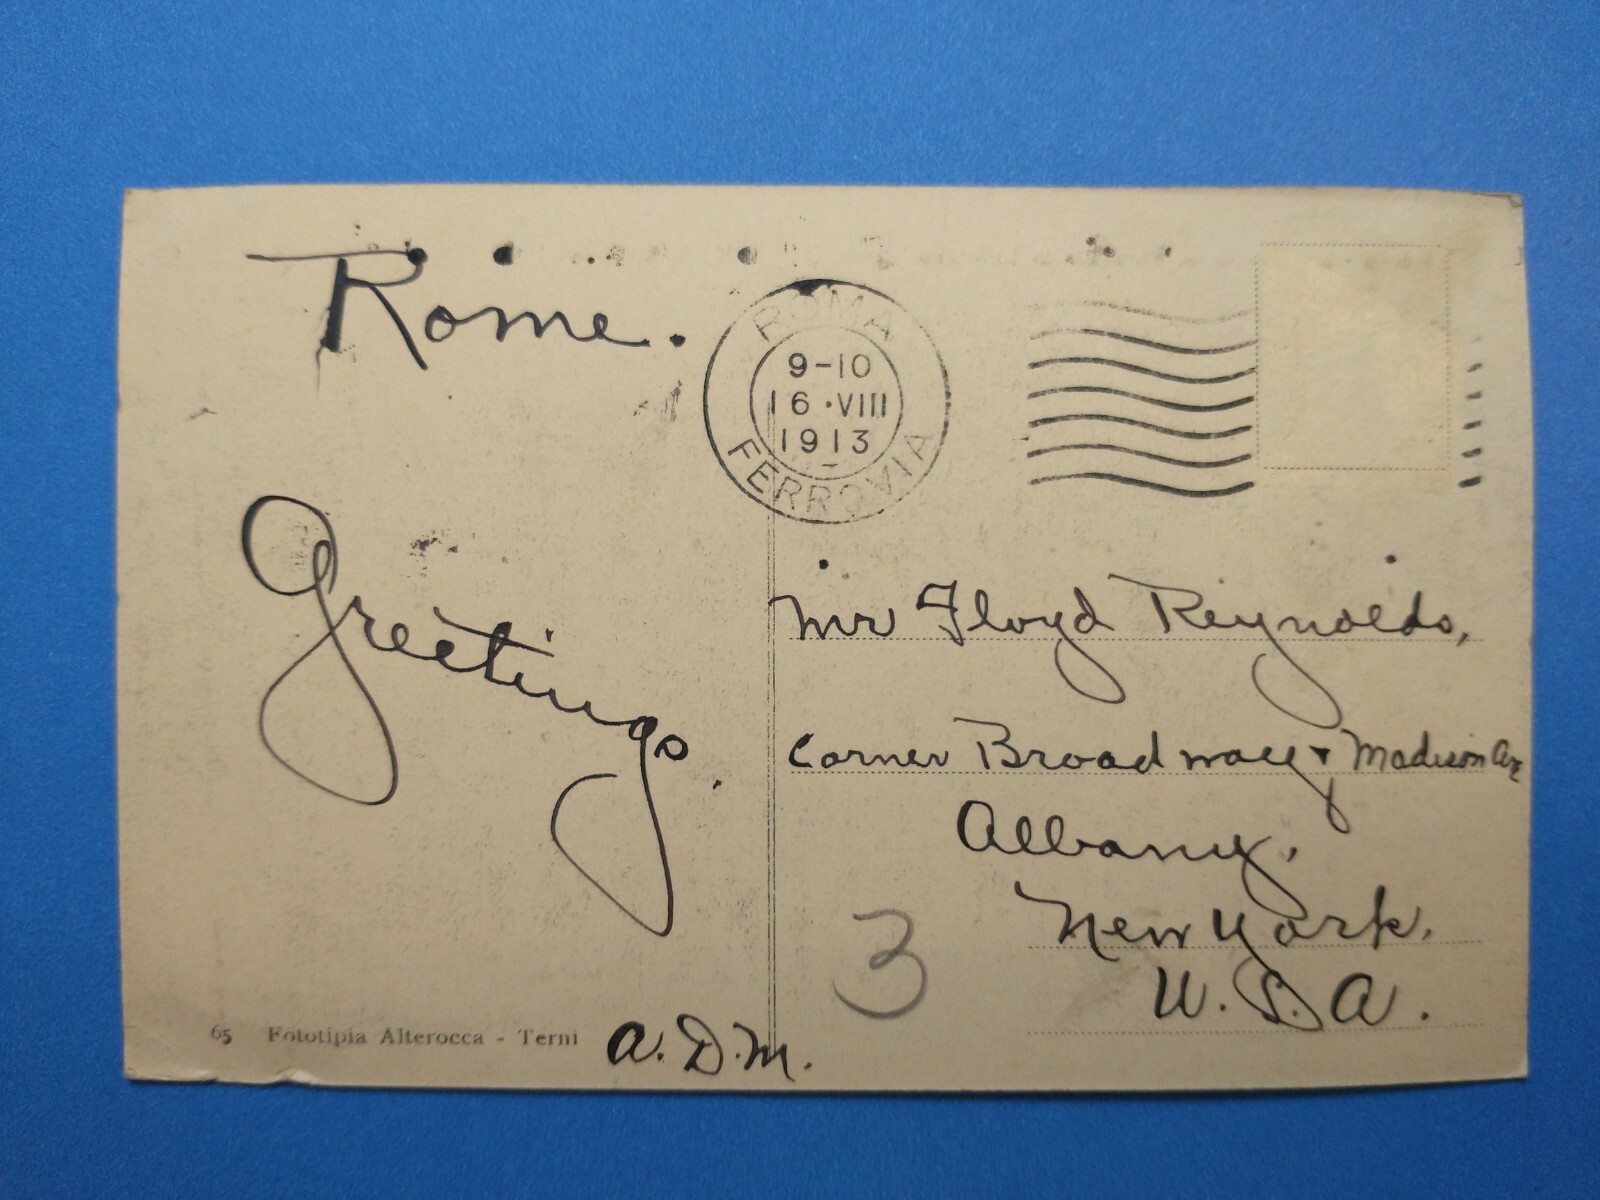 Rome.
Greetings.
A.D.M.
65 Fototipia Alterocca - Terni
ROMA
9-10
16·VIII
1913
FERROVIA
Mr Floyd Reynolds,
Corner Broadway & Madison Av
Albany,
New York.
U.S.A.
3